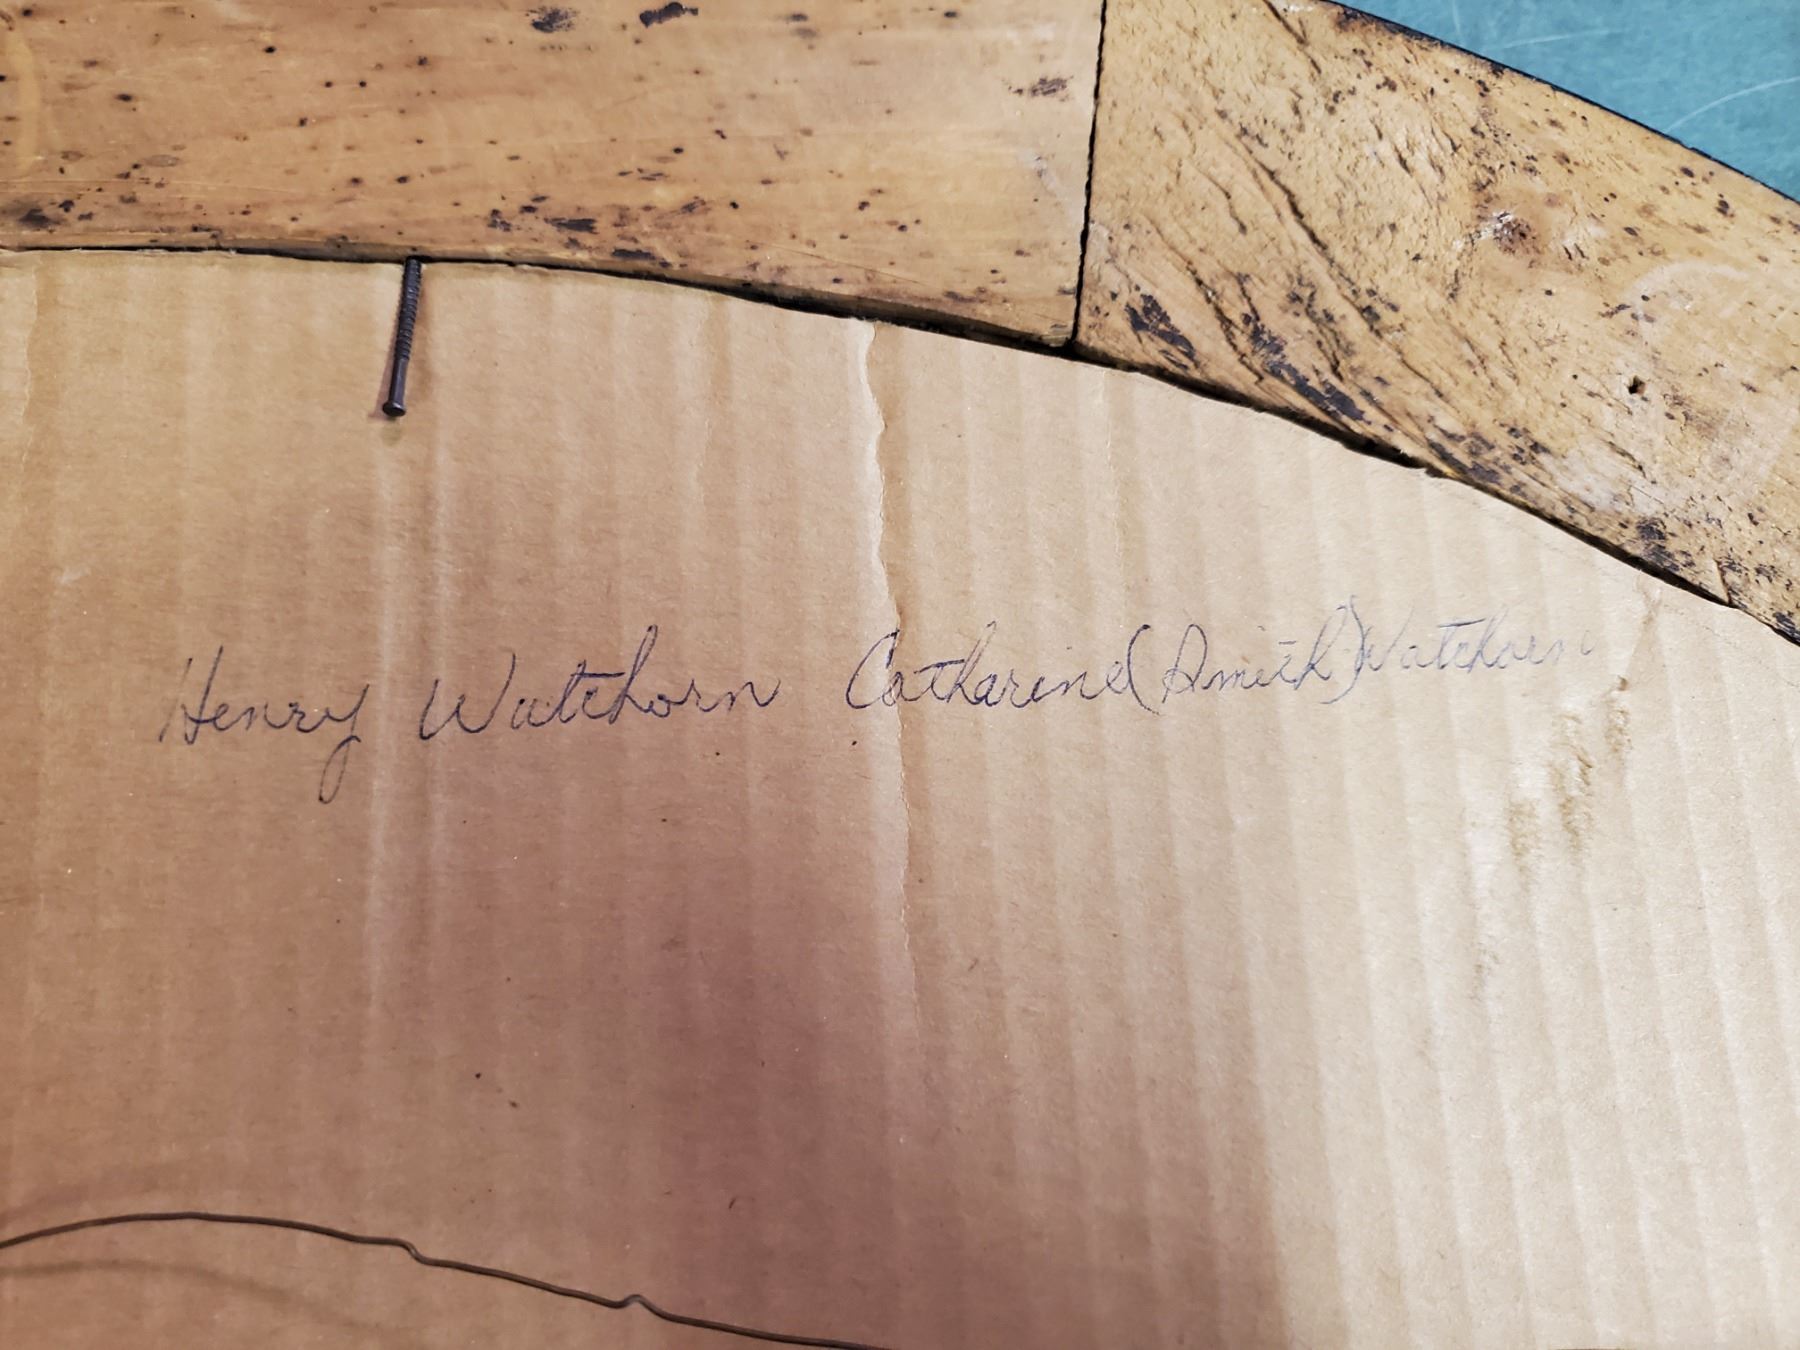 Henry Watchorn Catharine (Smith) Watchorn